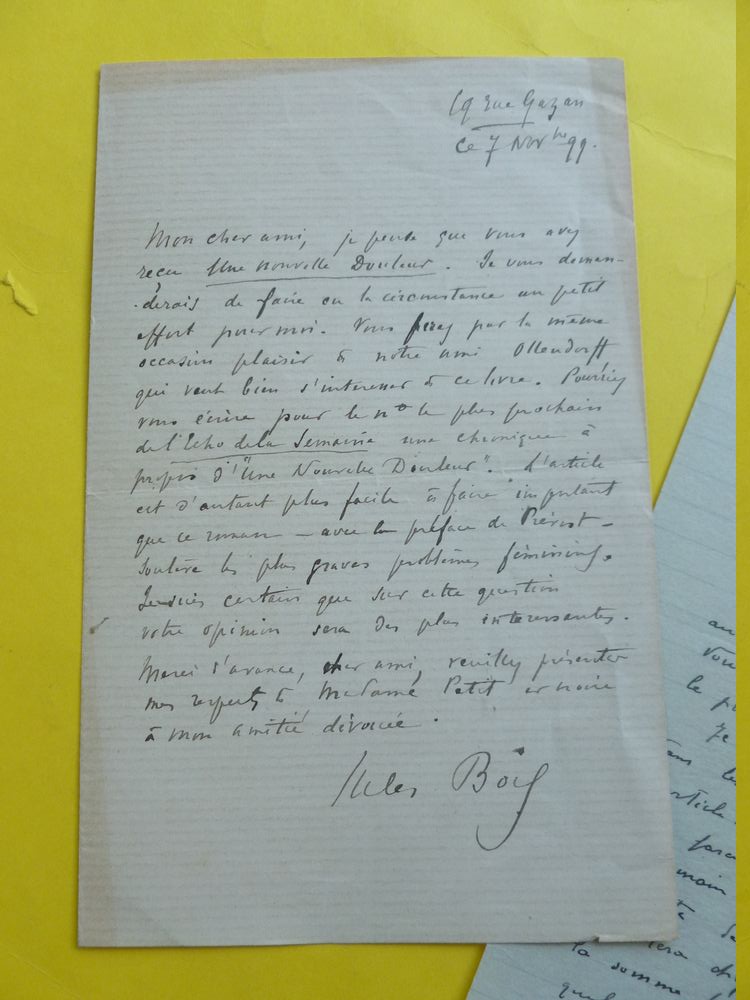 19 rue Gazan
ce 7 Nov bre 99.
Mon cher ami, je pense que vous avez
reçu Une nouvelle Douleur. Je vous deman-
-derais de faire en la circonstance un petit
effort pour moi. Vous ferez par la même
occasion plaisir à notre ami Ollendorff
qui veut bien s'interesser à ce livre. Pourriez
vous écrire pour le no le plus prochain
de l'Echo de la Semaine une chronique à
propos d'"Une Nouvelle Douleur". L'article
est d'autant plus facile à faire important
que ce roman — avec la préface de Prévost —
soulève les plus graves problèmes féminins.
Je suis certain que sur cette question
votre opinion sera des plus interessantes.
Merci d'avance, cher ami, veuillez présenter
mes respects à Madame Petit et
à mon amitié dévouée.
Jules Bois
au
vou
le
je
dans les
article
fara
main
la somme
quel